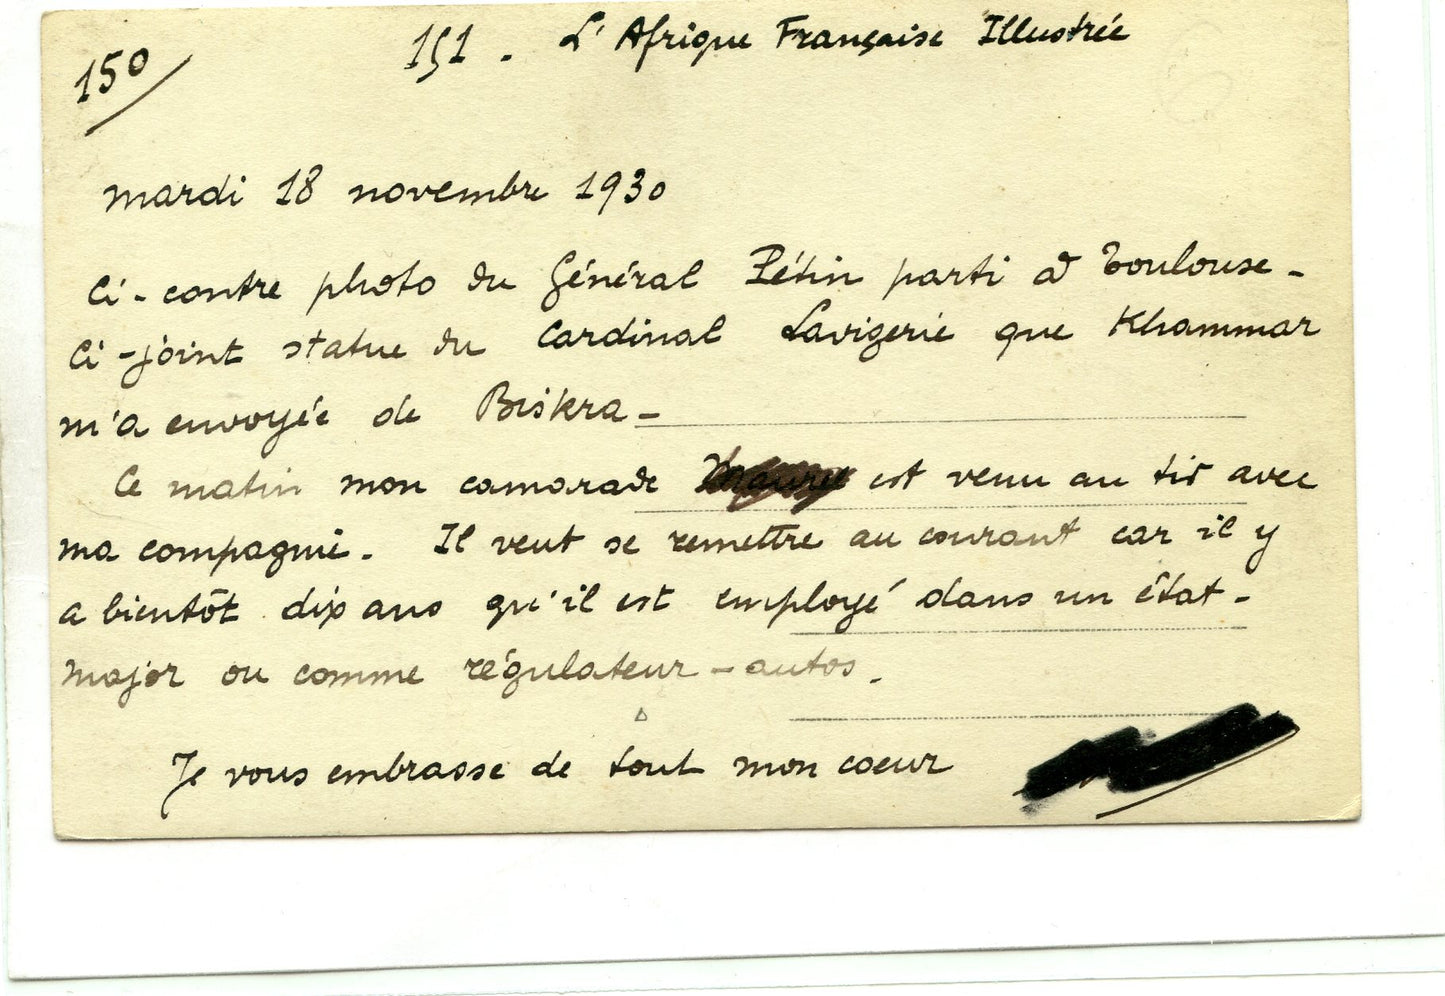 150
151. L'Afrique Française Illustrée
mardi 18 novembre 1930
Ci-contre photo du Général Pétin parti à Toulouse -
Ci-joint statue du Cardinal Lavigerie que Khammar
m'a envoyée de Biskra -
Ce matin mon camarade est venu au tir avec
ma compagnie. Il veut se remettre au courant car il y
a bientôt dix ans qu'il est employé dans un état-
major ou comme régulateur-autos.
Je vous embrasse de tout mon coeur